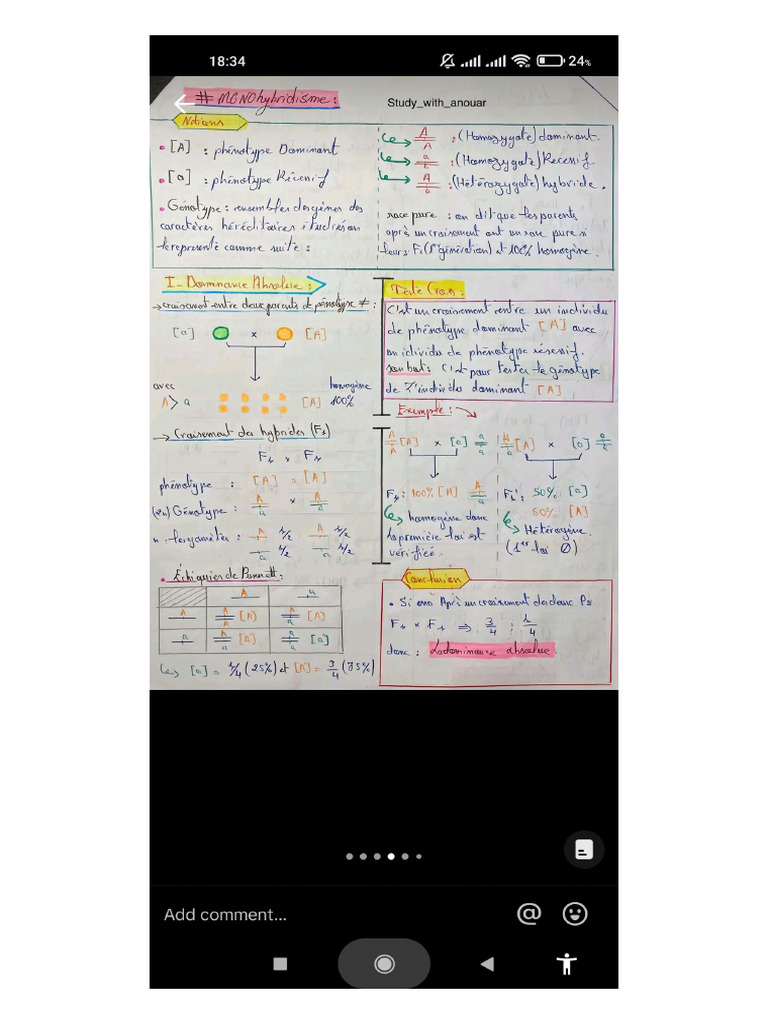 18:34
24%
# MONOhybridisme :
Study_with_anouar
Notions
• [A] : phénotype Dominant
• [a] : phénotype Récessif
• Génotype : ensembles des gènes des
caractères héréditaires étudiés on
le représente comme suite :
A/A : (Homozygote) dominant.
a/a : (Homozygote) Récessif
A/a : (Hétérozygote) hybride.
race pure : on dit que les parents
après un croisement ont un race pure si
leurs F1 (1ère génération) et 100% homogène.
I - Dominance Absolue :
→ croisement entre deux parents de phénotype ≠ :
[a] x [A]
avec
A > a
[A]
homogène
100%
→ Croisement des hybrides (F1)
F1 x F1
phénotype : [A] x [A]
(2n) Génotype : A/a x A/a
n : les gamètes : A 1/2 A 1/2
a 1/2 a 1/2
• Échiquier de Punnett :
A a
A A/A [A] A/a [A]
a A/a [A] a/a [a]
↳ [a] = 1/4 (25%) et [A] = 3/4 (75%)
Test Cross :
C'est un croisement entre un individu
de phénotype dominant [A] avec
un idividu de phénotype récessif.
son but : C'est pour tester le génotype
de l'individu dominant [A]
Exemple :
A/A [A] x [a] a/a
F1 : 100% [A] A/a
homogène donc
la première loi est
vérifiée.
A/a [A] x [a] a/a
F1' : 50% [a]
50% [A]
Hétérogène.
(1er loi Ø)
Conclusion
• Si on a Après un croisement des deux
F1 x F1 ⇒ 3/4 ; 1/4
donc : La dominance absolue.
Add comment...
@